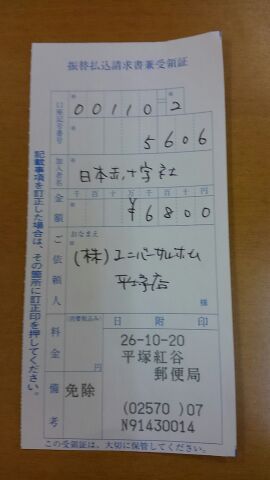 振替払込請求書兼受領証
口座記号番号
00110 2
5606
加入者名
日本赤十字社
金額
千 百 十 万 千 百 十 円
¥6800
ご依頼人
おなまえ
(株)ユニバーサルホーム
平塚店
様
料金
(消費税込み)
円
備考
免除
日附印
26-10-20
平塚紅谷
郵便局
(02570 )07
N91430014
記載事項を訂正した場合は、その箇所に訂正印を押してください。
この受領証は、大切に保管してください。